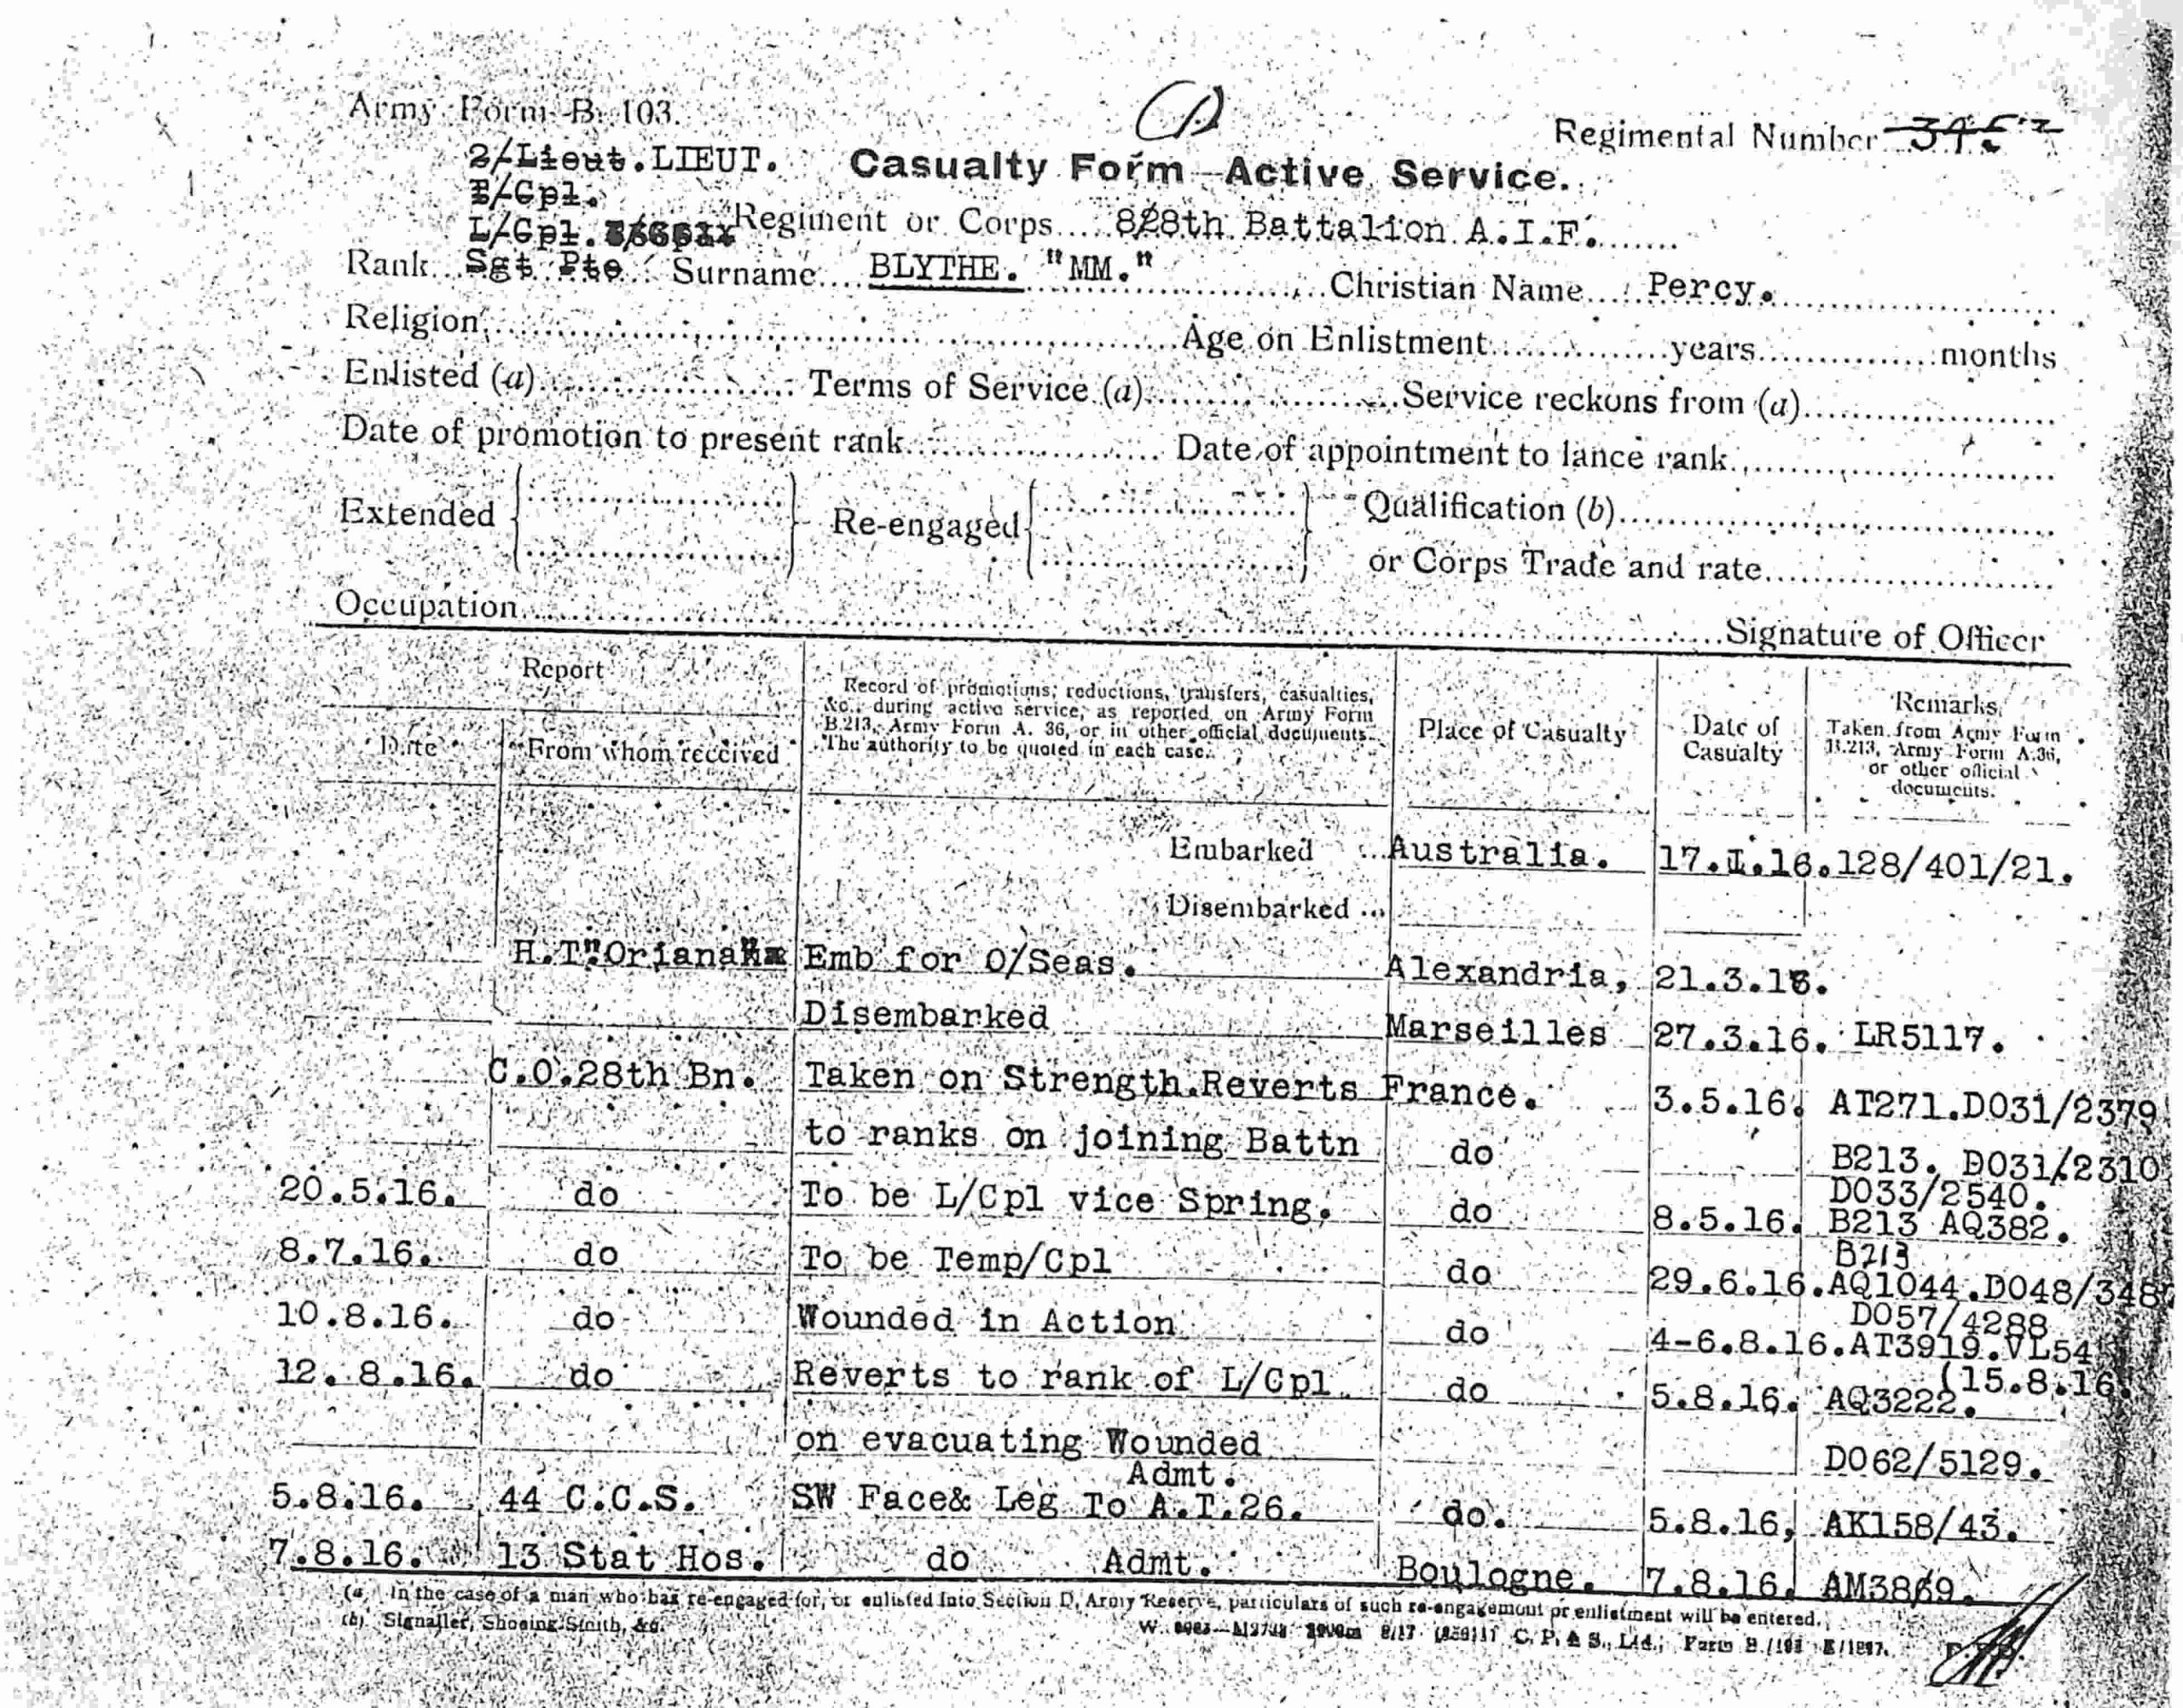 (1)
Army Form B. 103.
Regimental Number
2/Lieut. LIEUT.
Casualty Form—Active Service.
T/Cpl.
L/Cpl.
Regiment or Corps 28th Battalion A.I.F.
Rank Sgt Pte Surname BLYTHE. "MM." Christian Name Percy.
Religion Age on Enlistment years months
Enlisted (a) Terms of Service (a) Service reckons from (a)
Date of promotion to present rank Date of appointment to lance rank
Extended Re-engaged Qualification (b)
or Corps Trade and rate
Occupation
Signature of Officer
Report
Date From whom received
Record of promotions, reductions, transfers, casualties,
&c., during active service, as reported on Army Form
B.213, Army Form A. 36, or in other official documents.
The authority to be quoted in each case.
Place of Casualty
Date of
Casualty
Remarks
Taken from Army Form
B.213, Army Form A.36,
or other official
documents.
Embarked ... Australia. 17.I.16. 128/401/21.
Disembarked ...
H.T"Oriana" Emb for O/Seas. Alexandria, 21.3.16.
Disembarked Marseilles 27.3.16. LR5117.
C.O.28th Bn. Taken on Strength.Reverts France. 3.5.16. AT271.DO31/2379
to ranks on joining Battn do B213. DO31/2310
DO33/2540.
20.5.16. do To be L/Cpl vice Spring. do 8.5.16. B213 AQ382.
B213
8.7.16. do To be Temp/Cpl do 29.6.16. AQ1044.DO48/348
DO57/4288
10.8.16. do Wounded in Action do 4-6.8.16. AT3919.VL54
(15.8.16.
12.8.16. do Reverts to rank of L/Cpl do 5.8.16. AQ3222.
on evacuating Wounded DO62/5129.
Admt.
5.8.16. 44 C.C.S. SW Face& Leg To A.T.26. do. 5.8.16, AK158/43.
7.8.16. 13 Stat Hos. do Admt. Boulogne. 7.8.16. AM3869.
(a) In the case of a man who has re-engaged for, or enlisted into Section D, Army Reserve, particulars of such re-engagement or enlistment will be entered.
(b) Signaller, Shoeing Smith, &c.
C. P. & S., Ltd.; Form B./103